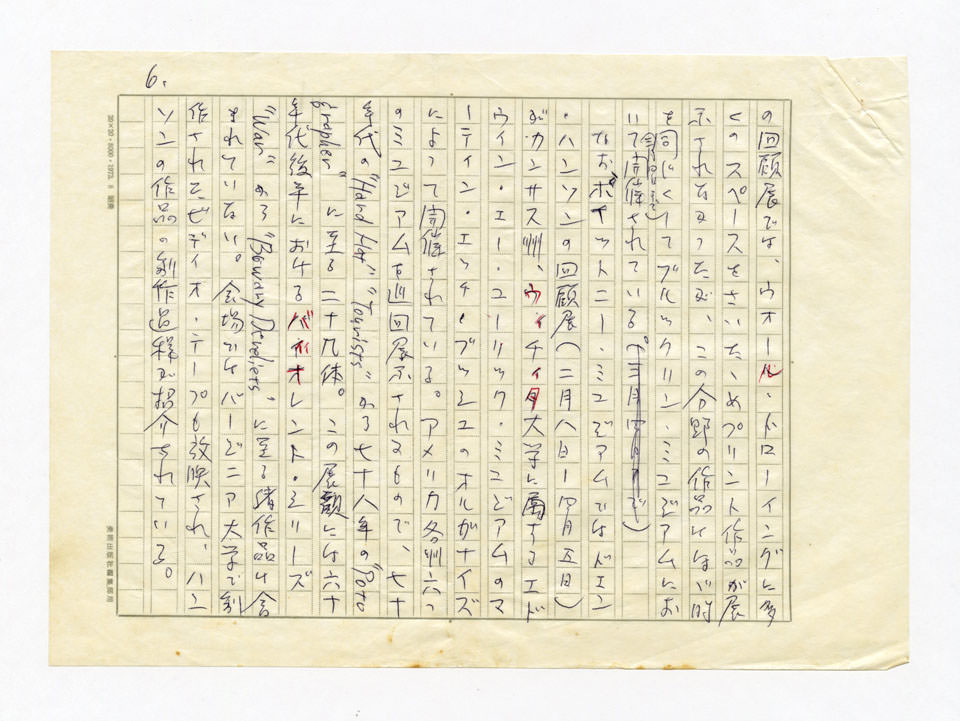 6.
の回顧展では、ウオール・ドローイングに多
くのスペースをさいたためプリント作品が展
示されなかったが、この分野の作品はほぼ時
を同じくしてブルックリン・ミユゼアムにお
いて開催されている
なおポキットニー・ミユゼアムではドエン
・ハンソンの回顧展(二月八日ー四月五日)
がカンサス州、ウィチィタ大学に属するエド
ウイン・エー・ユーリック・ミユゼアムのマ
ーティン・エッチ・ブッシュのオルガナイズ
によって開催されている。アメリカ各州六つ
のミユゼアムを巡回展示されるもので、七十
年代の"Hard Hat" "Tourists"から七十八年の"Poto
grapher"に至る二十九体。この展観には六十
年代後半におけるバイオレント・シリーズ
"War"から"Bowery Derelicts"に至る諸作品は含
まれていない。会場ではバージニア大学で制
作されたビディオ・テープも放映され、ハン
ソンの作品の制作過程が招介されている。
20×20・8000・1973. 8
美術出版社編集部用